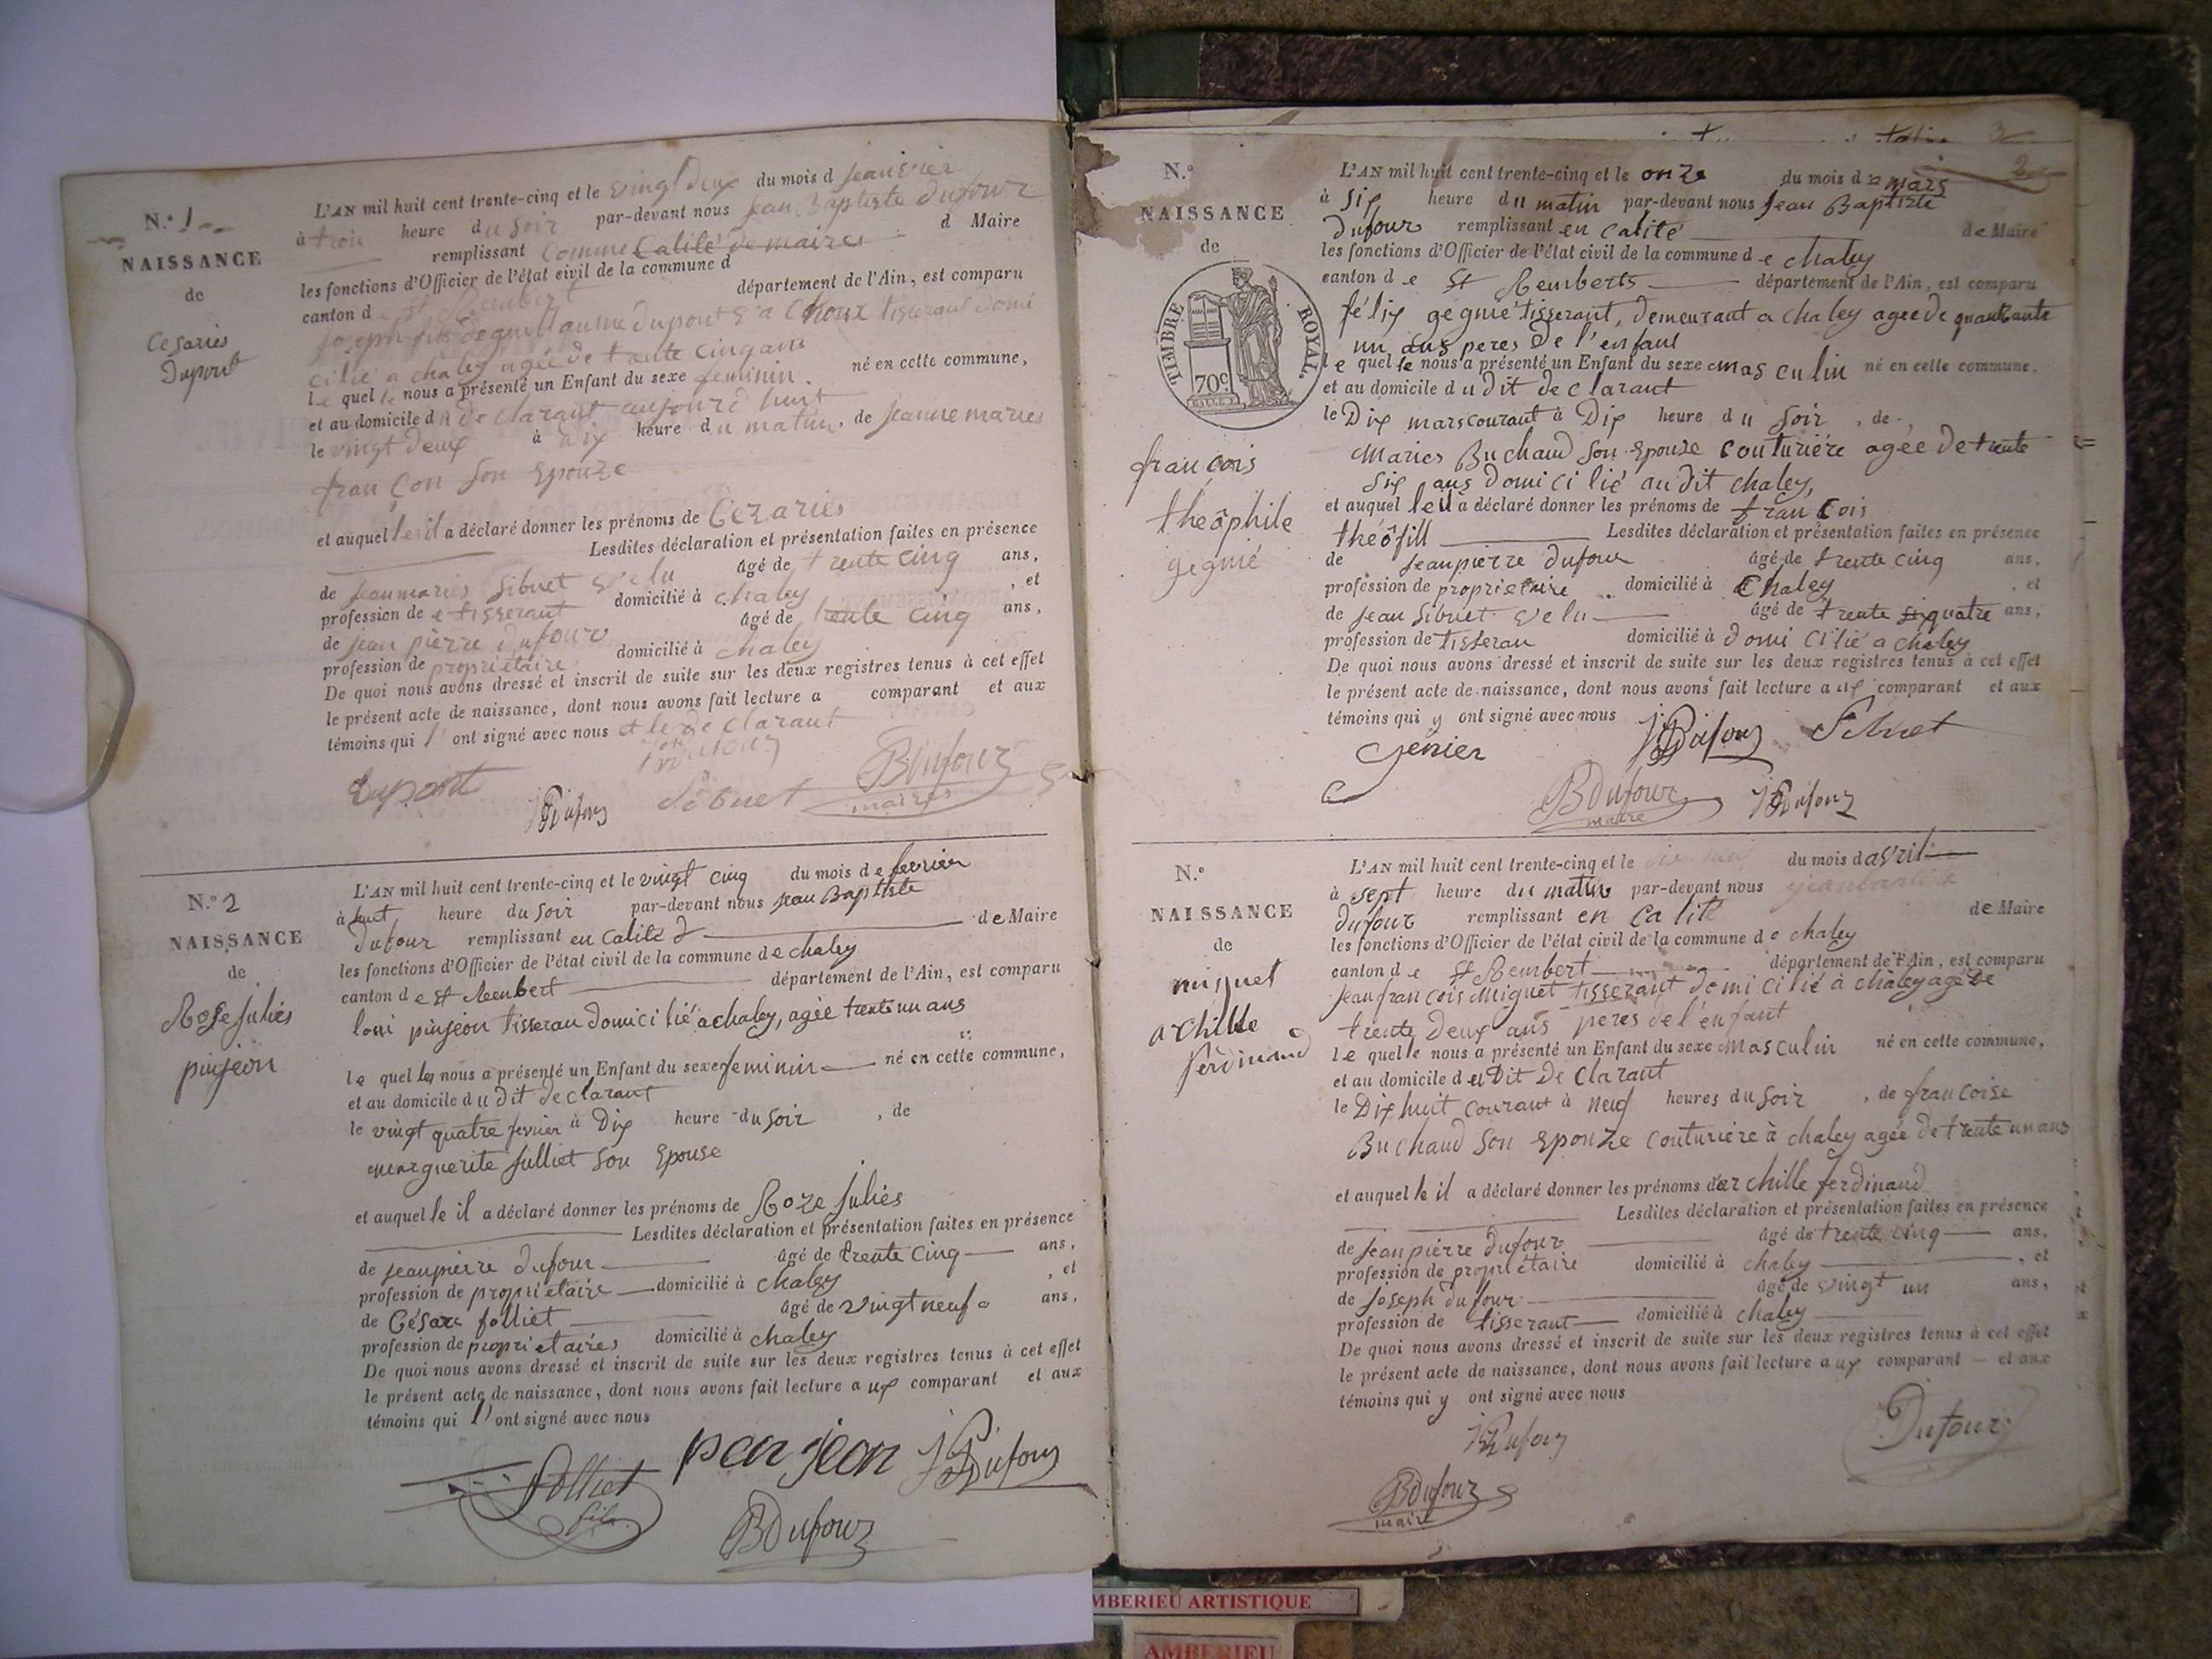 N.° 1
NAISSANCE
de
Cesaries
Dupont
L'AN mil huit cent trente-cinq et le vingt deux du mois d jeanvier
à trois heure du soir par-devant nous jean Baptiste dufour
remplissant comme Calité de maires d Maire
les fonctions d'Officier de l'état civil de la commune d
canton de St Rembert département de l'Ain, est comparu
joseph fils de guillaume dupont tisserant domi
cilié a chaley agée de trante cinq ans
le quel le nous a présenté un Enfant du sexe feminin. né en cette commune,
et au domicile d u de clarant aujourd huit
le vingt deux à Dix heure du matin, de jeanne maries
françon Son Epouze
et auquel le il a déclaré donner les prénoms de Cézaries
Lesdites déclaration et présentation faites en présence
de jeanmaries Sibuet âgé de trente cinq ans,
profession de tisserant domicilié à chaley , et
de jean pierre dufour âgé de trente cinq ans,
profession de propriétaire domicilié à chaley
De quoi nous avons dressé et inscrit de suite sur les deux registres tenus à cet effet
le présent acte de naissance, dont nous avons fait lecture a comparant et aux
témoins qui l' ont signé avec nous et le de clarant
Dupont JPDufour Sibuet BDufour
maires
N.° 2
NAISSANCE
de
Roze julies
pinjeon
L'AN mil huit cent trente-cinq et le vingt cinq du mois de fevrier
à huit heure du soir par-devant nous jean Baptiste
Dufour remplissant en Calité d de Maire
les fonctions d'Officier de l'état civil de la commune de chaley
canton de St Rembert département de l'Ain, est comparu
loui pinjeon tisseran domici lié a chaley, agée trente un ans
le quel le nous a présenté un Enfant du sexe feminin né en cette commune,
et au domicile du dit declarant
le vingt quatre fevrier à Dix heure du soir , de
marguerite julliet Son Epouse
et auquel le il a déclaré donner les prénoms de Roze julies
Lesdites déclaration et présentation faites en présence
de jeanpierre dufour âgé de trente cinq ans,
profession de propriétaire domicilié à chaley , et
de César folliet âgé de vingt neuf ans,
profession de propriétaires domicilié à chaley
De quoi nous avons dressé et inscrit de suite sur les deux registres tenus à cet effet
le présent acte de naissance, dont nous avons fait lecture a ux comparant et aux
témoins qui l' ont signé avec nous
Folliet penjeon JPDufour
fils
BDufour
N.°
NAISSANCE
de
TIMBRE ROYAL
70c.
françois
théophile
gegnié
L'AN mil huit cent trente-cinq et le onze du mois de mars
à Six heure du matin par-devant nous jean Baptiste
Dufour remplissant en calité de Maire
les fonctions d'Officier de l'état civil de la commune de chaley
canton de St Remberts département de l'Ain, est comparu
félix gegnie tisserant, demeurant a chaley agee de quarante
un ans peres de l'enfant
le quel le nous a présenté un Enfant du sexe masculin né en cette commune,
et au domicile du dit declarant
le Dix mars courant à Dix heure du Soir , de
maries Buchaud Son Epouze couturiére agée de trente
Six ans domicilié au dit chaley,
et auquel le il à déclaré donner les prénoms de françois
théôfill Lesdites déclaration et présentation faites en présence
de jeanpierre dufour âgé de trente cinq ans,
profession de propriétaire domicilié à Chaley , et
de jean Sibuet âgé de trente quatre ans,
profession de Tisseran domicilié à domi cilié a chaley
De quoi nous avons dressé et inscrit de suite sur les deux registres tenus à cet effet
le présent acte de naissance, dont nous avons fait lecture a ux comparant et aux
témoins qui y ont signé avec nous JPDufour Sibuet
Genier
BDufour JPDufour
maire
N.°
NAISSANCE
de
miguet
achille
ferdinand
L'AN mil huit cent trente-cinq et le dix neuf du mois d avril
à sept heure du matin par-devant nous jeanbaptiste
Dufour remplissant en Calité de Maire
les fonctions d'Officier de l'état civil de la commune de chaley
canton de St Rembert département de l'Ain, est comparu
jean françois Miguet tisserant domicilié à chaley agé de
trente deux ans peres de l'enfant
le quel le nous a présenté un Enfant du sexe masculin né en cette commune,
et au domicile du Dit Declarant
le Dix huit courant à neuf heures du soir , de françoise
Buchaud Son Epouze couturière à chaley agée de trente un ans
et auquel le il a déclaré donner les prénoms d'archille ferdinand
Lesdites déclaration et présentation faites en présence
de jeanpierre dufour âgé de trente cinq ans,
profession de propriétaire domicilié à chaley , et
de joseph dufour âgé de vingt un ans,
profession de tisserant domicilié à chaley
De quoi nous avons dressé et inscrit de suite sur les deux registres tenus à cet effet
le présent acte de naissance, dont nous avons fait lecture a ux comparant et aux
témoins qui y ont signé avec nous
JPDufour Dufour
BDufour
maire
MBERIEU ARTISTIQUE
AMBERIEU